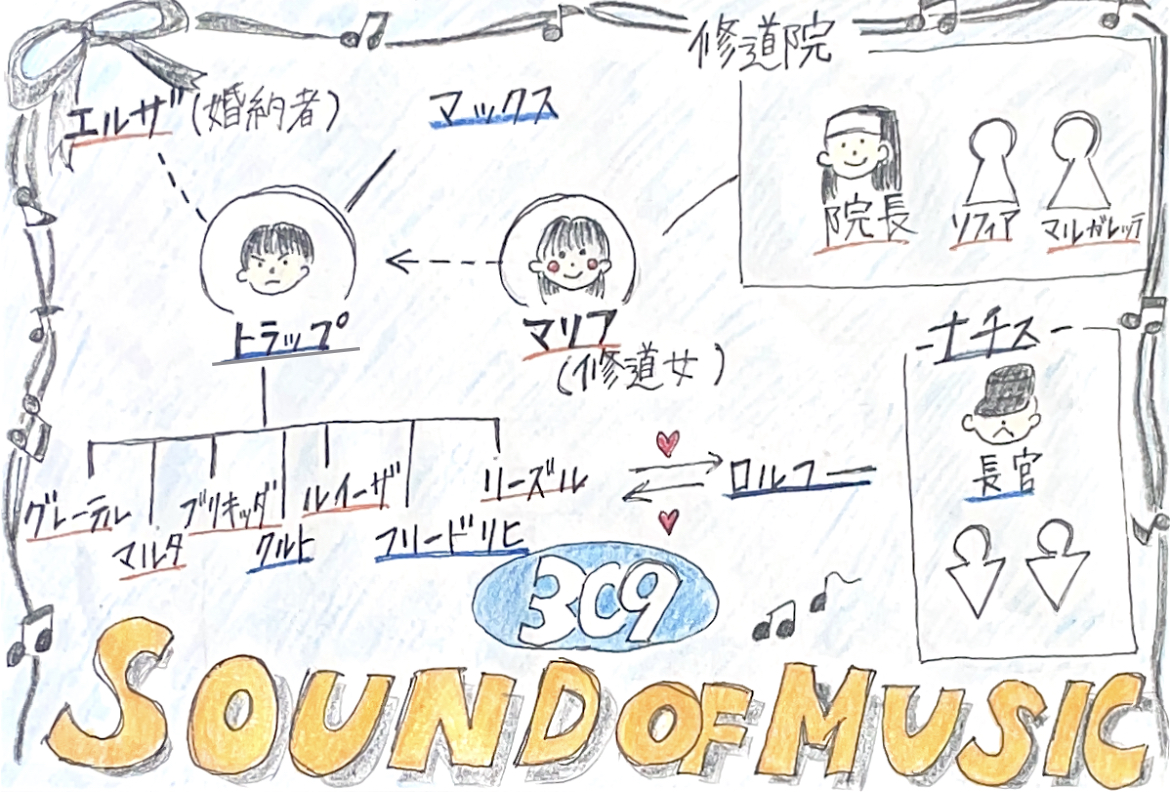 修道院
エルザ(婚約者)
マックス
院長
ソフィア
マルガレッテ
トラップ
マリア
(修道女)
ナチス
長官
グレーテル
マルタ
ブリキッダ
クルト
ルイーザ
フリードリヒ
リーズル
ロルフ
3C9
SOUND OF MUSIC